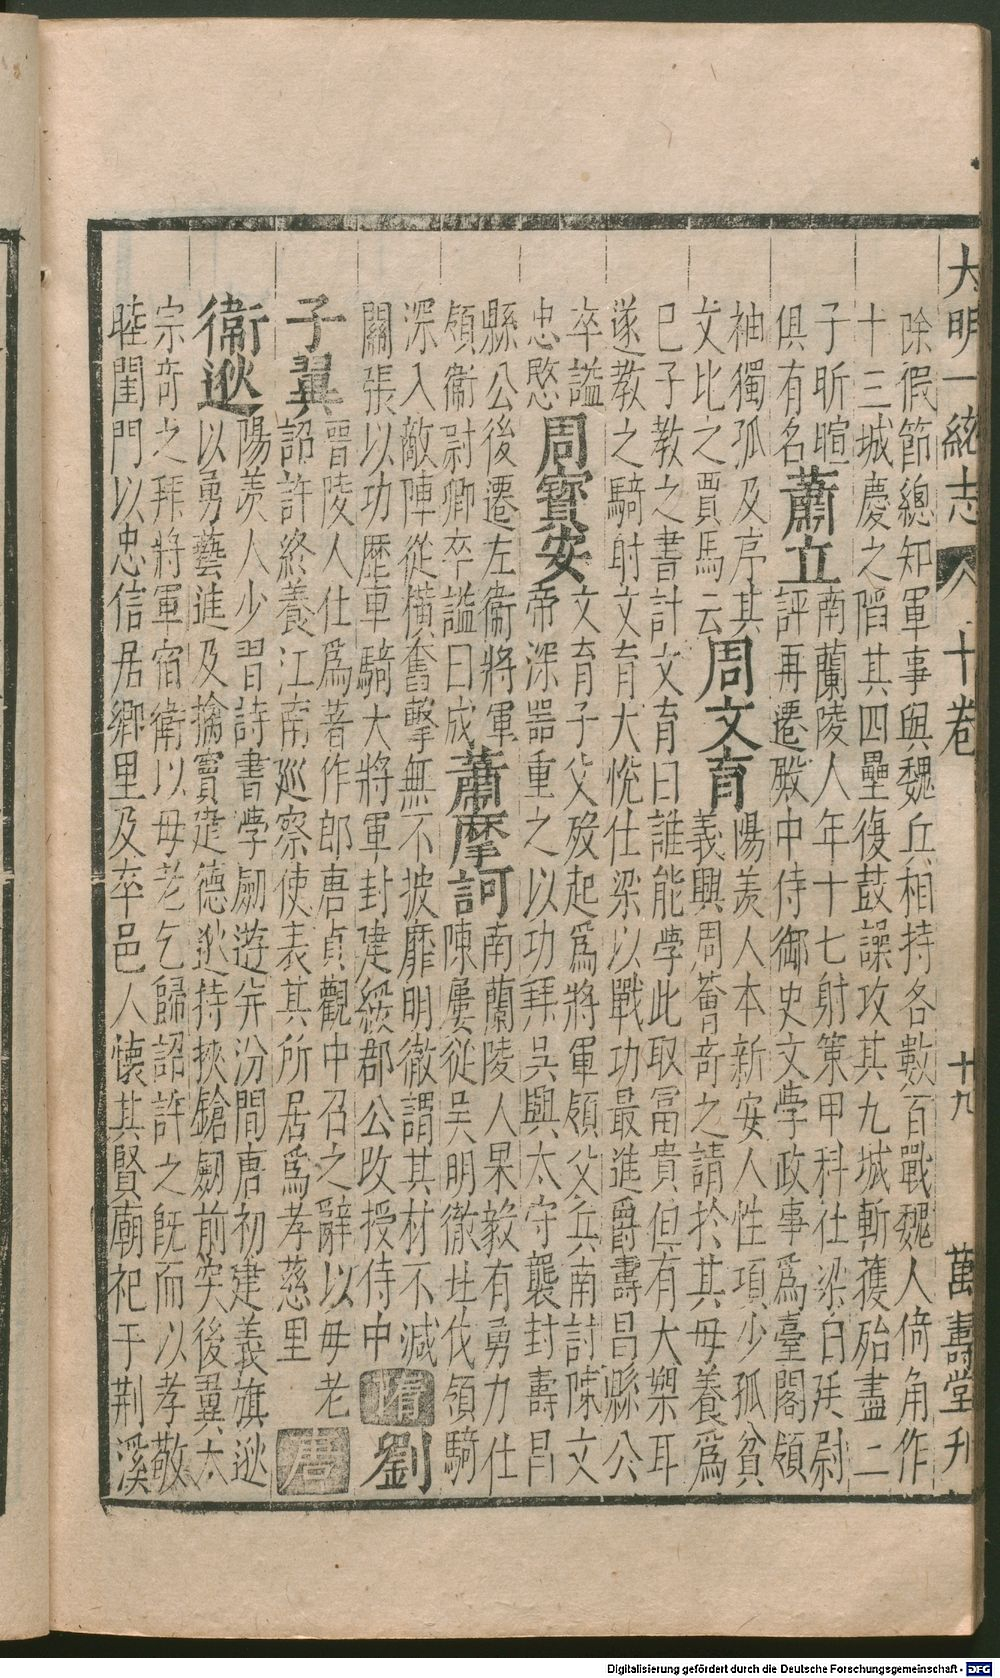 大明一統志 十卷 十九 萬壽堂刋
除假節總知軍事與魏丘相持各數百戰魏人倚角作
十三城慶之䧟其四壘復鼓譟攻其九城斬獲殆盡二
子昕暄俱有名蕭立南蘭陵人年十七射策甲科仕梁白廷尉
評再遷殿中侍御史文學政事爲臺閣領
袖獨孤及序其
文比之賈馬云周文育陽羡人本新安人性項少孤貧
義興周薈奇之請於其母養爲
巳子教之書計文育曰誰能學此取冨貴但有大槊耳
遂教之騎射文育大悅仕梁以戰功最進爵壽昌縣公
卒諡忠愍周寳安文育子父歿起爲將軍領父兵南討陳文
帝深器重之以功拜吳興太守襲封壽昌
縣公後遷左衞將軍
領衞尉卿卒諡曰成蕭摩訶南蘭陵人果毅有勇力仕
陳屢從吳明徹北伐領騎
深入敵陣從橫奮擊無不披靡明徹謂其材不減
關張以功歷車騎大將軍封建綏郡公改授侍中隋劉
子翼晋陵人仕爲著作郎唐貞觀中召之辭以母老
詔許終養江南廵察使表其所居爲孝慈里唐
衞逖陽羡人少習詩書學劒遊并汾間唐初建義旗逖
以勇藝進及擒竇建德逖持挾鎗劒前突後翼太
宗奇之拜將軍宿衞以母老乞歸詔許之旣而以孝敬
睦閨門以忠信居鄉里及卒邑人懷其賢廟祀于荆溪
Digitalisierung gefördert durch die Deutsche Forschungsgemeinschaft - DFG